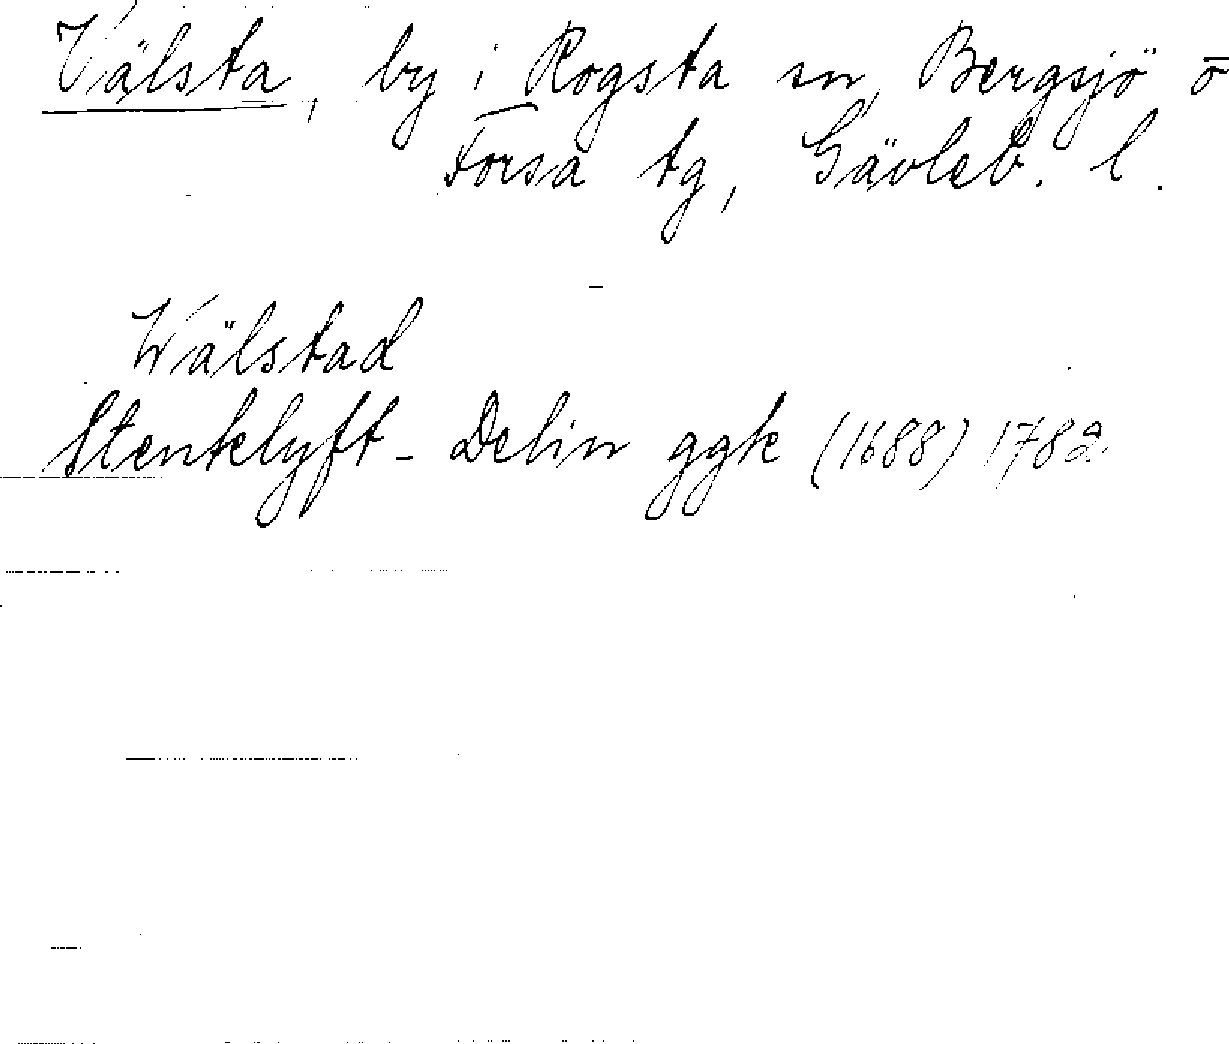 Välsta, by i Rogsta sn, Bergsjö o
Forsa tg, Gävleb. l.
Wälstad
Stenklyft - Delin ggk (1688) 1782.